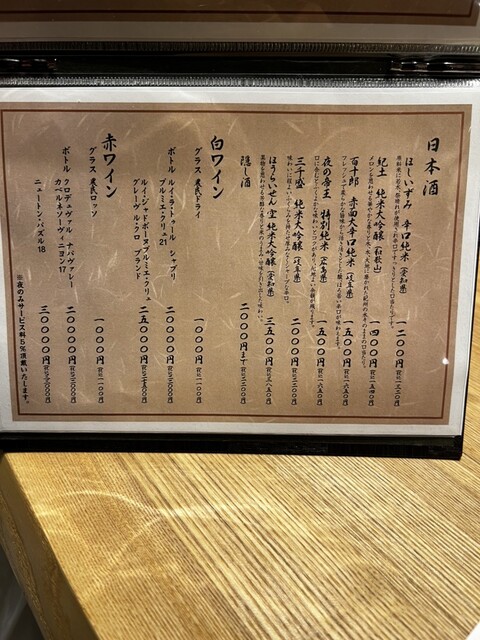 日本酒
ほしいずみ 辛口純米（愛知県） 一二〇〇円（税込一三二〇円）
紀土 純米大吟醸（和歌山） 一四〇〇円（税込一五四〇円）
百十郎 赤面大辛口純米（岐阜県） 一五〇〇円（税込一六五〇円）
夜の帝王 特別純米（広島県） 一五〇〇円（税込一六五〇円）
三千盛 純米大吟醸（岐阜県） 二〇〇〇円（税込二二〇〇円）
ほうらいせん 空 純米大吟醸（愛知県） 三五〇〇円（税込三八五〇円）
隠し酒 二〇〇〇円まで（税込二二〇〇円）
白ワイン
グラス 東氏ドライ 一〇〇〇円（税込一一〇〇円）
ボトル ルイ・ラトゥール シャブリ
プルミエ・クリュ 21 二〇〇〇〇円（税込二二〇〇〇円）
ルイ・ジャドボーヌプルミエ・クリュ
グレーヴ ル・クロ ブランド 二五〇〇〇円（税込二七五〇〇円）
赤ワイン
グラス 東氏ロッソ 一〇〇〇円（税込一一〇〇円）
ボトル クロデュヴァル・ナパヴァレー
カベルネソーヴィニヨン17 二〇〇〇〇円（税込二二〇〇〇円）
ニュートン・パズル18 三〇〇〇〇円（税込三三〇〇〇円）
※夜のみサービス料５％頂戴いたします。